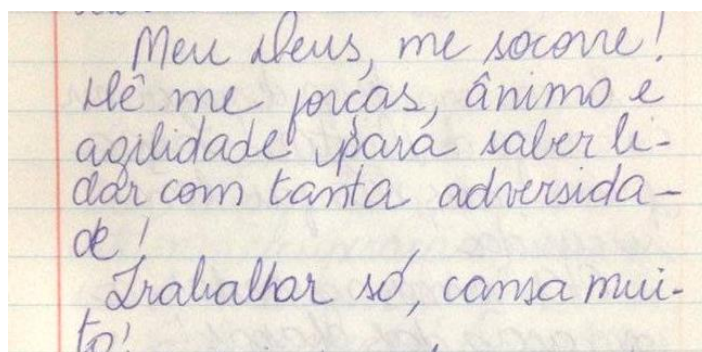 Meu Deus, me socorre!
Dê me forças, ânimo e
agilidade para saber li-
dar com tanta adversida-
de!
Trabalhar só, cansa mui-
to!